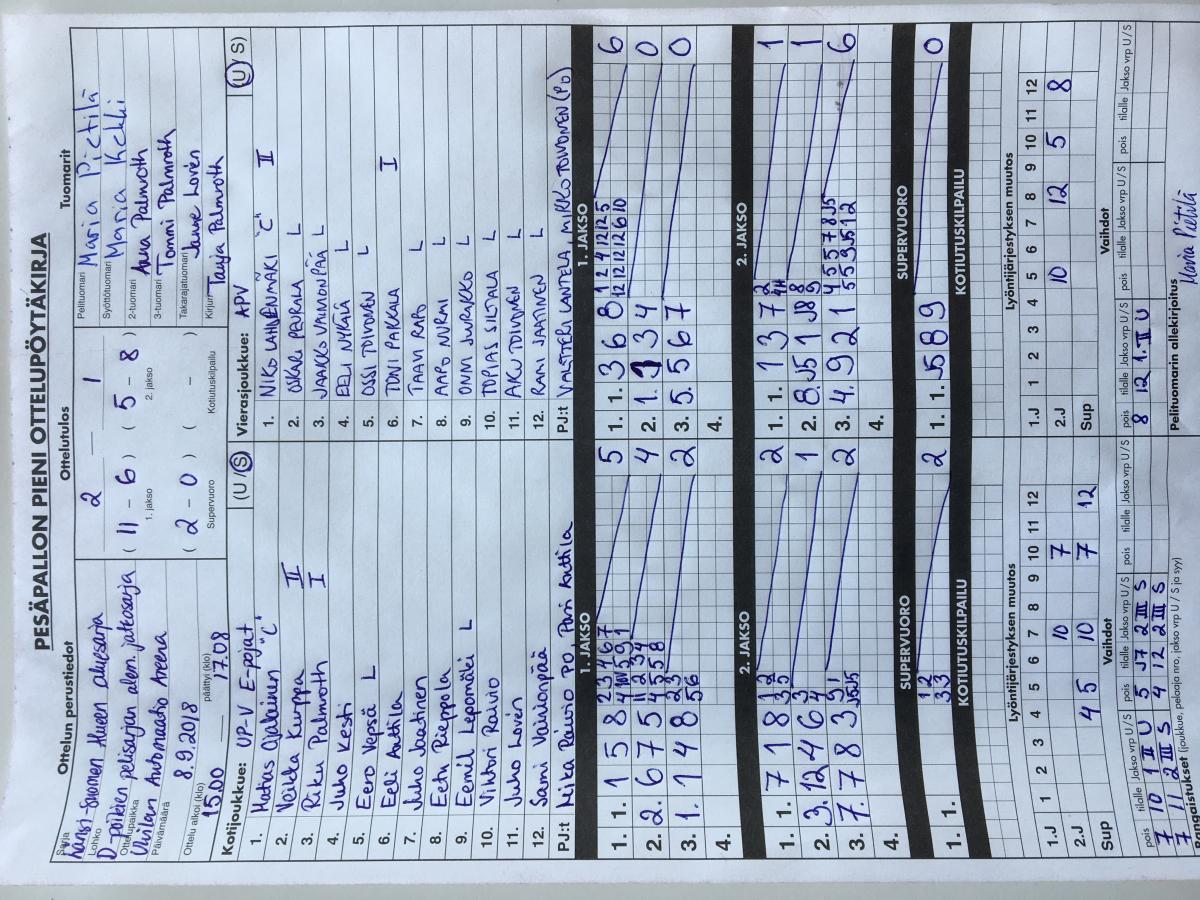 PESÄPALLON PIENI OTTELUPÖYTÄKIRJA
Ottelun perustiedot
Ottelutulos
Tuomarit
Sarja
Länsi-Suomen alueen aluesarja
Lohko
D-poikien pelisarjan alem. jatkosarja
Ottelupaikka
Ulvilan Automaatio Areena
Päivämäärä
8.9.2018
Ottelu alkoi (klo) 15.00
päättyi (klo) 17.08
2 — 1
( 11 - 6 ) ( 5 - 8 )
1. jakso 2. jakso
( 2 - 0 ) ( - )
Supervuoro Kotiutuskilpailu
Pelituomari Maria Pietilä
Syöttötuomari Maria Kekki
2-tuomari Anna Palmroth
3-tuomari Tommi Palmroth
Takarajatuomari Janne Loven
Kirjuri Tanja Palmroth
Kotijoukkue: UP-V E-pojat (U / S)
1. Matias Ojalainen "C"
2. Veikka Kurppa II
3. Riku Palmroth I
4. Juho Kesti
5. Eero Vepsä L
6. Eeli Anttila
7. Juho Jaatinen
8. Eetu Rieppola
9. Eemil Lepomäki L
10. Vihtori Raivio
11. Juho Loven
12. Sami Vainionpää
PJ:t Mika Raivio PO, Pasi Anttila
Vierasjoukkue: APV (U / S)
1. NIKO LAHDENMÄKI "C" II
2. OSKARI PEURALA L
3. JAAKKO VAINIONPÄÄ L
4. EELI NYKÄLÄ L
5. OSSI TOIVONEN L
6. TONI PAKKALA I
7. TAAVI RAPO L
8. AARO NURMI L
9. ONNI JURAKKO L
10. TOPIAS SILTALA L
11. AKU TOIVONEN L
12. RAMI JAATINEN L
PJ:t VALTTERI LANTELA, MIKKO TOIVONEN (PO)
1. JAKSO
1. 1. 1 5 8 5
2. 2. 6 7 5 4
3. 1. 1 4 8 2
4.
1. JAKSO
1. 1. 3 6 8 6
2. 1. 1 3 4 0
3. 5. 5 6 7 0
4.
2. JAKSO
1. 1. 7 1 8 2
2. 3. 12 4 6 1
3. 7. 7 8 3 2
4.
2. JAKSO
1. 1. 1 3 7 1
2. 8. J5 1 J8 1
3. 4. 9 2 1 6
4.
SUPERVUORO
1. 1. 2
SUPERVUORO
1. 1. J5 8 9 0
KOTIUTUSKILPAILU
KOTIUTUSKILPAILU
Lyöntijärjestyksen muutos
1 2 3 4 5 6 7 8 9 10 11 12
1.J
2.J 10 7
Sup 4 5 10 7 12
Lyöntijärjestyksen muutos
1 2 3 4 5 6 7 8 9 10 11 12
1.J
2.J 10 12 5 8
Sup
Vaihdot
pois tilalle Jakso vrp U / S pois tilalle Jakso vrp U / S pois tilalle Jakso vrp U / S
7 10 1 II U 5 J7 2 III S
7 11 2 III S 4 12 2 III S
Vaihdot
pois tilalle Jakso vrp U / S pois tilalle Jakso vrp U / S pois tilalle Jakso vrp U / S
8 12 1. II U
Rangaistukset (joukkue, pelaaja nro, jakso vrp U / S ja syy)
Pelituomarin allekirjoitus
Maria Pietilä